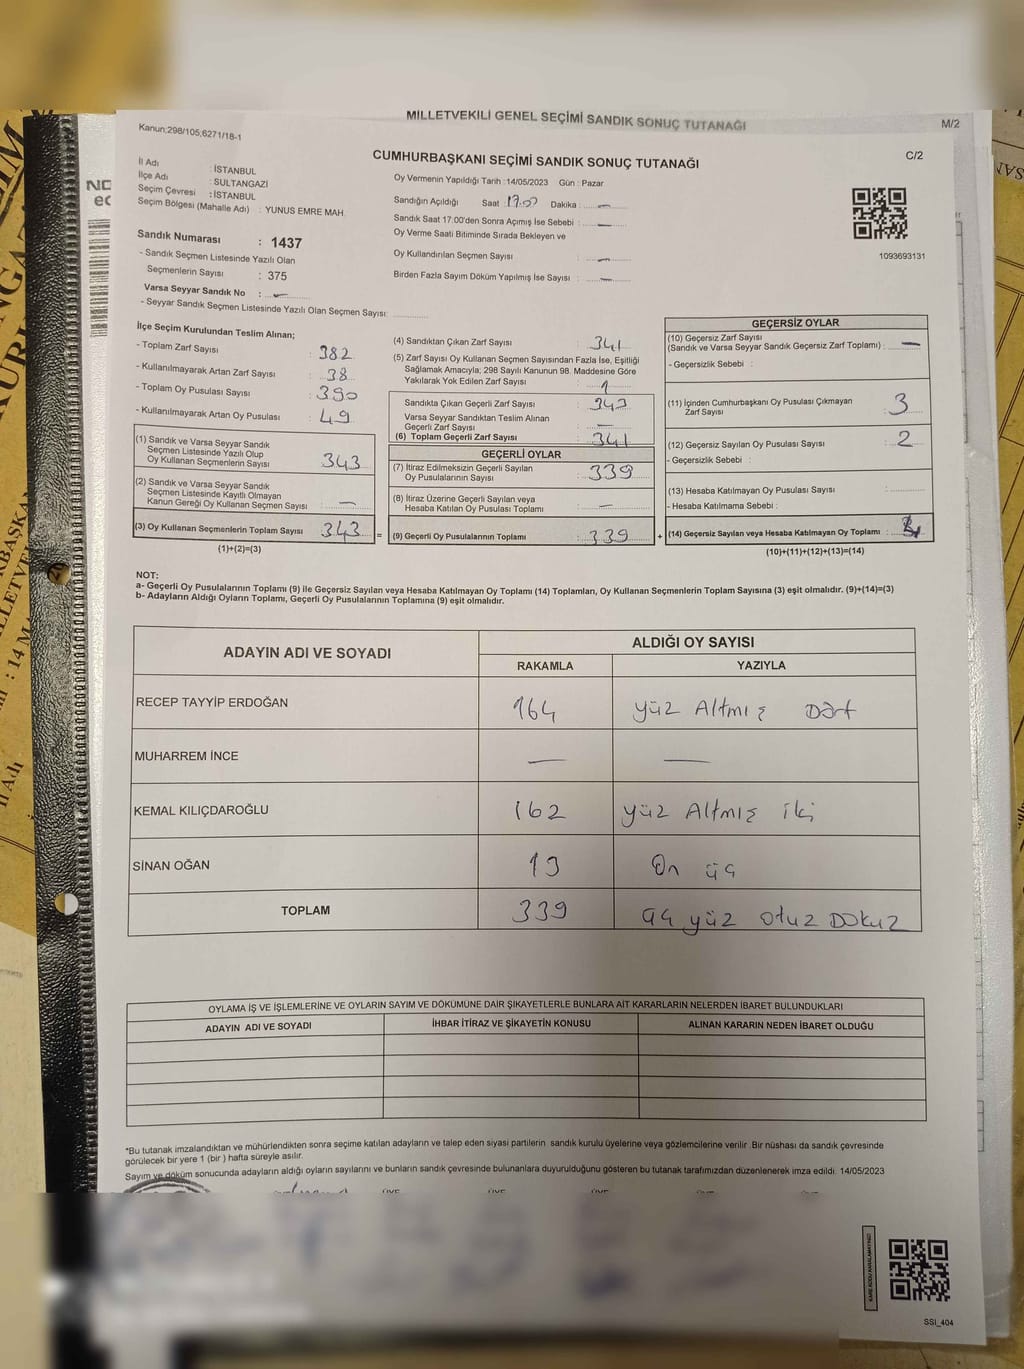 MİLLETVEKİLİ GENEL SEÇİMİ SANDIK SONUÇ TUTANAĞI
M/2
Kanun:298/105,6271/18-1
CUMHURBAŞKANI SEÇİMİ SANDIK SONUÇ TUTANAĞI
C/2
İl Adı : İSTANBUL
İlçe Adı : SULTANGAZİ
Seçim Çevresi : İSTANBUL
Seçim Bölgesi (Mahalle Adı) : YUNUS EMRE MAH.
Sandık Numarası : 1437
- Sandık Seçmen Listesinde Yazılı Olan
Seçmenlerin Sayısı : 375
Varsa Seyyar Sandık No : —
- Seyyar Sandık Seçmen Listesinde Yazılı Olan Seçmen Sayısı:
Oy Vermenin Yapıldığı Tarih :14/05/2023 Gün : Pazar
Sandığın Açıldığı Saat :17:00 Dakika : —
Sandık Saat 17:00'den Sonra Açımış İse Sebebi : —
Oy Verme Saati Bitiminde Sırada Bekleyen ve
Oy Kullandırılan Seçmen Sayısı : —
Birden Fazla Sayım Döküm Yapılmış İse Sayısı : —
1093693131
İlçe Seçim Kurulundan Teslim Alınan;
- Toplam Zarf Sayısı : 382
- Kullanılmayarak Artan Zarf Sayısı : 38
- Toplam Oy Pusulası Sayısı : 390
- Kullanılmayarak Artan Oy Pusulası : 49
(1) Sandık ve Varsa Seyyar Sandık
Seçmen Listesinde Yazılı Olup
Oy Kullanan Seçmenlerin Sayısı : 343
(2) Sandık ve Varsa Seyyar Sandık
Seçmen Listesinde Kayıtlı Olmayan
Kanun Gereği Oy Kullanan Seçmen Sayısı : —
(3) Oy Kullanan Seçmenlerin Toplam Sayısı : 343
(1)+(2)=(3)
(4) Sandıktan Çıkan Zarf Sayısı : 341
(5) Zarf Sayısı Oy Kullanan Seçmen Sayısından Fazla İse, Eşitliği
Sağlamak Amacıyla; 298 Sayılı Kanunun 98. Maddesine Göre
Yakılarak Yok Edilen Zarf Sayısı : 1
Sandıkta Çıkan Geçerli Zarf Sayısı : 343
Varsa Seyyar Sandıktan Teslim Alınan
Geçerli Zarf Sayısı : —
(6) Toplam Geçerli Zarf Sayısı : 341
GEÇERLİ OYLAR
(7) İtiraz Edilmeksizin Geçerli Sayılan
Oy Pusulalarının Sayısı : 339
(8) İtiraz Üzerine Geçerli Sayılan veya
Hesaba Katılan Oy Pusulası Toplamı : —
= (9) Geçerli Oy Pusulalarının Toplamı : 339
GEÇERSİZ OYLAR
(10) Geçersiz Zarf Sayısı
(Sandık ve Varsa Seyyar Sandık Geçersiz Zarf Toplamı) : —
- Geçersizlik Sebebi :
(11) İçinden Cumhurbaşkanı Oy Pusulası Çıkmayan
Zarf Sayısı : 3
(12) Geçersiz Sayılan Oy Pusulası Sayısı : 2
- Geçersizlik Sebebi :
(13) Hesaba Katılmayan Oy Pusulası Sayısı :
- Hesaba Katılmama Sebebi :
+ (14) Geçersiz Sayılan veya Hesaba Katılmayan Oy Toplamı :
(10)+(11)+(12)+(13)=(14)
NOT:
a- Geçerli Oy Pusulaları Toplamı (9) ile Geçersiz Sayılan veya Hesaba Katılmayan Oy Toplamı (14) Toplamları, Oy Kullanan Seçmenlerin Toplam Sayısına (3) eşit olmalıdır. (9)+(14)=(3)
b- Adayların Aldığı Oyların Toplamı, Geçerli Oy Pusulalarının Toplamına (9) eşit olmalıdır.
ADAYIN ADI VE SOYADI
ALDIĞI OY SAYISI
RAKAMLA YAZIYLA
RECEP TAYYİP ERDOĞAN 164 yüz Altmış Dört
MUHARREM İNCE — —
KEMAL KILIÇDAROĞLU 162 yüz Altmış iki
SİNAN OĞAN 13 On üç
TOPLAM 339 üç yüz otuz Dokuz
OYLAMA İŞ VE İŞLEMLERİNE VE OYLARIN SAYIM VE DÖKÜMÜNE DAİR ŞİKAYETLERLE BUNLARA AİT KARARLARIN NELERDEN İBARET BULUNDUKLARI
ADAYIN ADI VE SOYADI İHBAR İTİRAZ VE ŞİKAYETİN KONUSU ALINAN KARARIN NEDEN İBARET OLDUĞU
*Bu tutanak imzalandıktan ve mühürlendikten sonra seçime katılan adayların ve talep eden siyasi partilerin sandık kurulu üyelerine veya gözlemcilerine verilir .Bir nüshası da sandık çevresinde
görülecek bir yere 1 (bir ) hafta süreyle asılır.
Sayım ve döküm sonucunda adayların aldığı oyların sayılarını ve bunların sandık çevresinde bulunanlara duyurulduğunu gösteren bu tutanak tarafımızdan düzenlenerek imza edildi. 14/05/2023
SSI_404